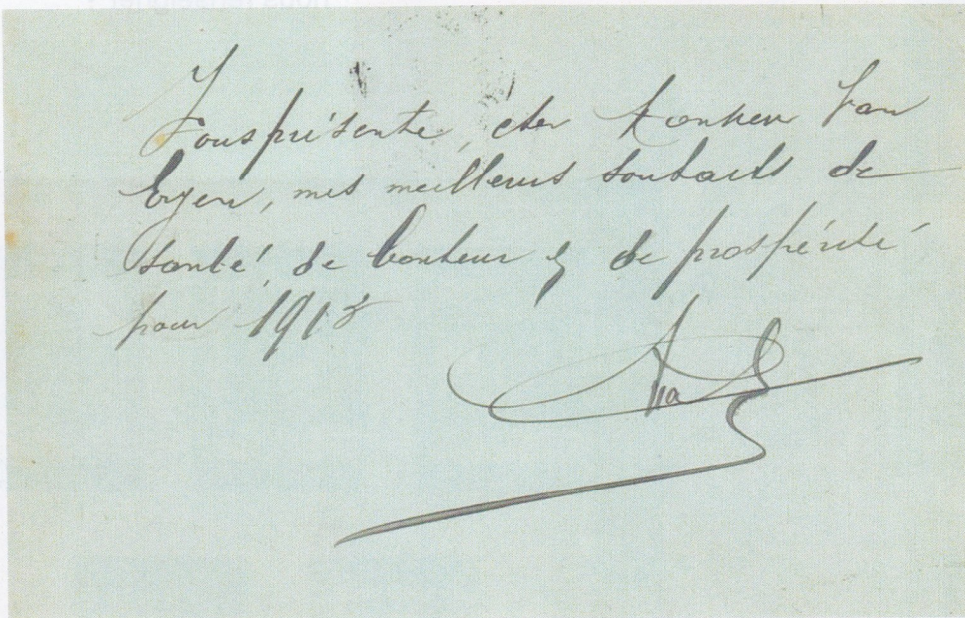 Vous présente, cher Monsieur Van
Eyen, mes meilleurs souhaits de
santé, de bonheur & de prospérité
pour 1913